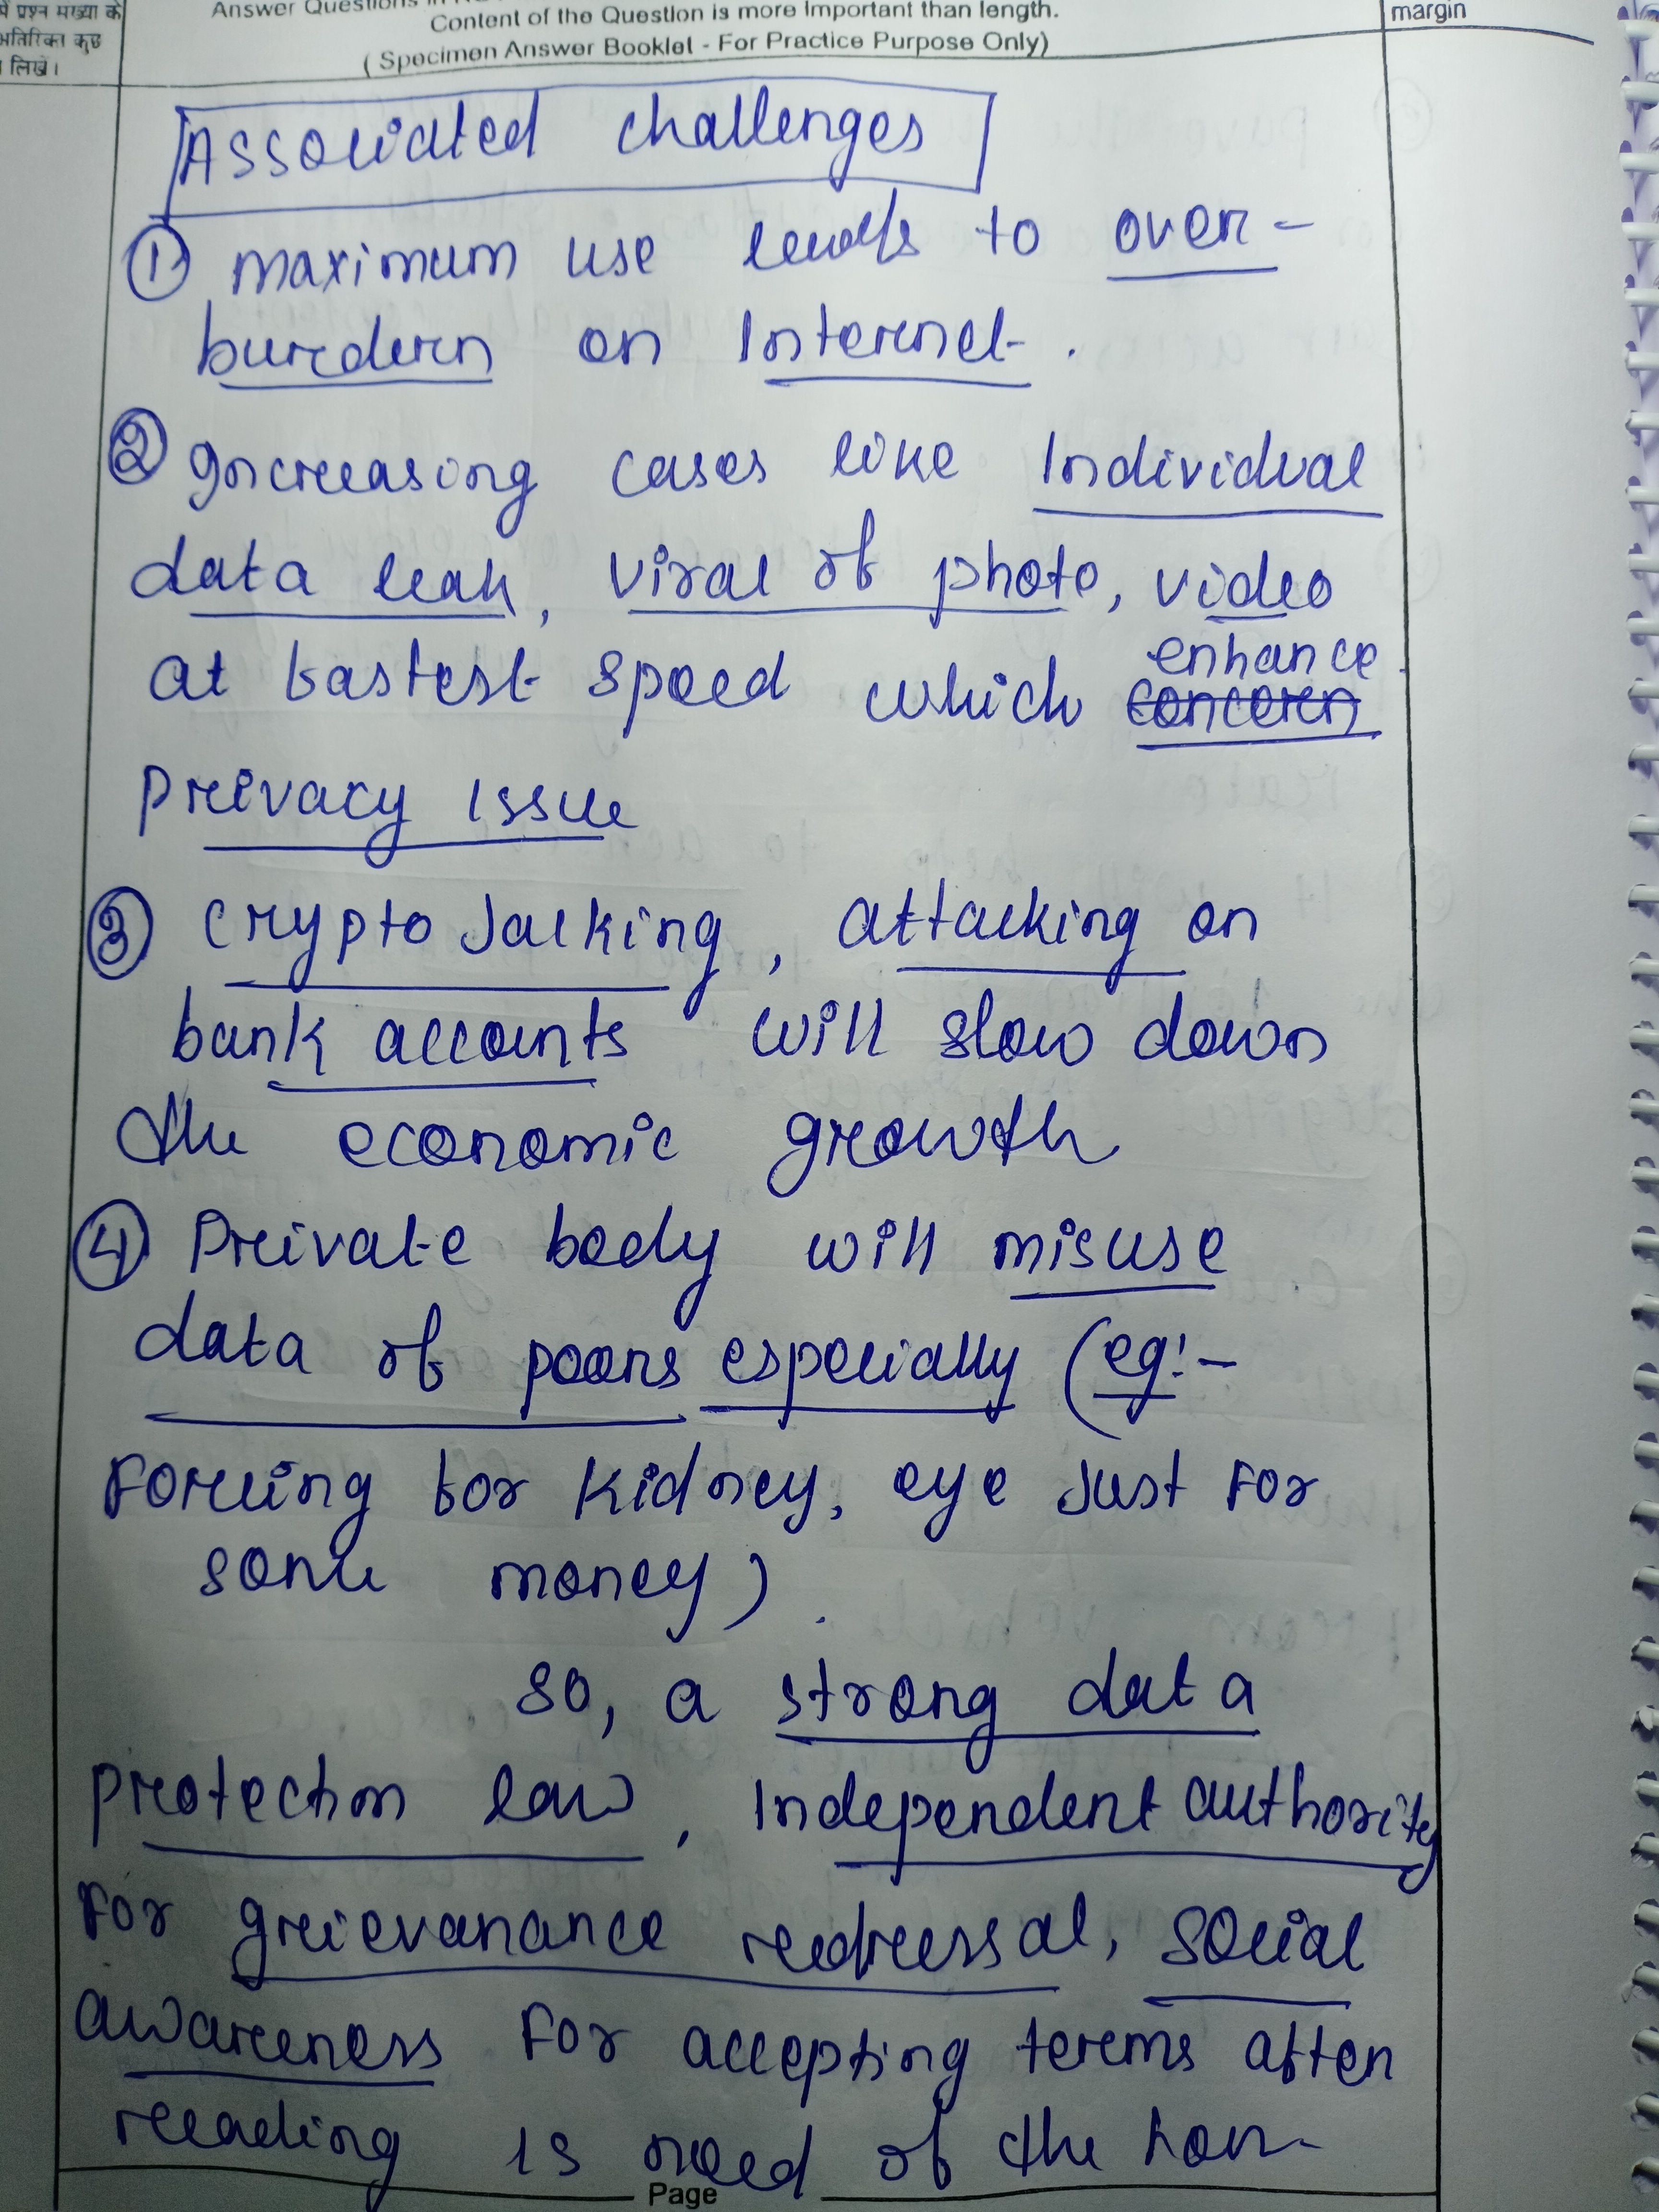 में प्रश्न संख्या के
अतिरिक्त कुछ
लिखें।
Answer Questions in
Content of the Question is more important than length.
( Specimen Answer Booklet - For Practice Purpose Only)
margin
Associated challenges
① maximum use leads to over-
burdern on Internet.
② Increasing cases like Individual
data leak, viral of photo, video
at fastest speed which enhance
concern
Privacy issue
③ Crypto Jacking, attacking on
bank accounts will slow down
the economic growth
④ Private body will misuse
data of poors especially (eg:-
Forcing for kidney, eye just for
some money).
So, a strong data
protection law, Independent authority
For grievanance redressal, social
awareness for accepting terms after
reading is need of the hour.
Page